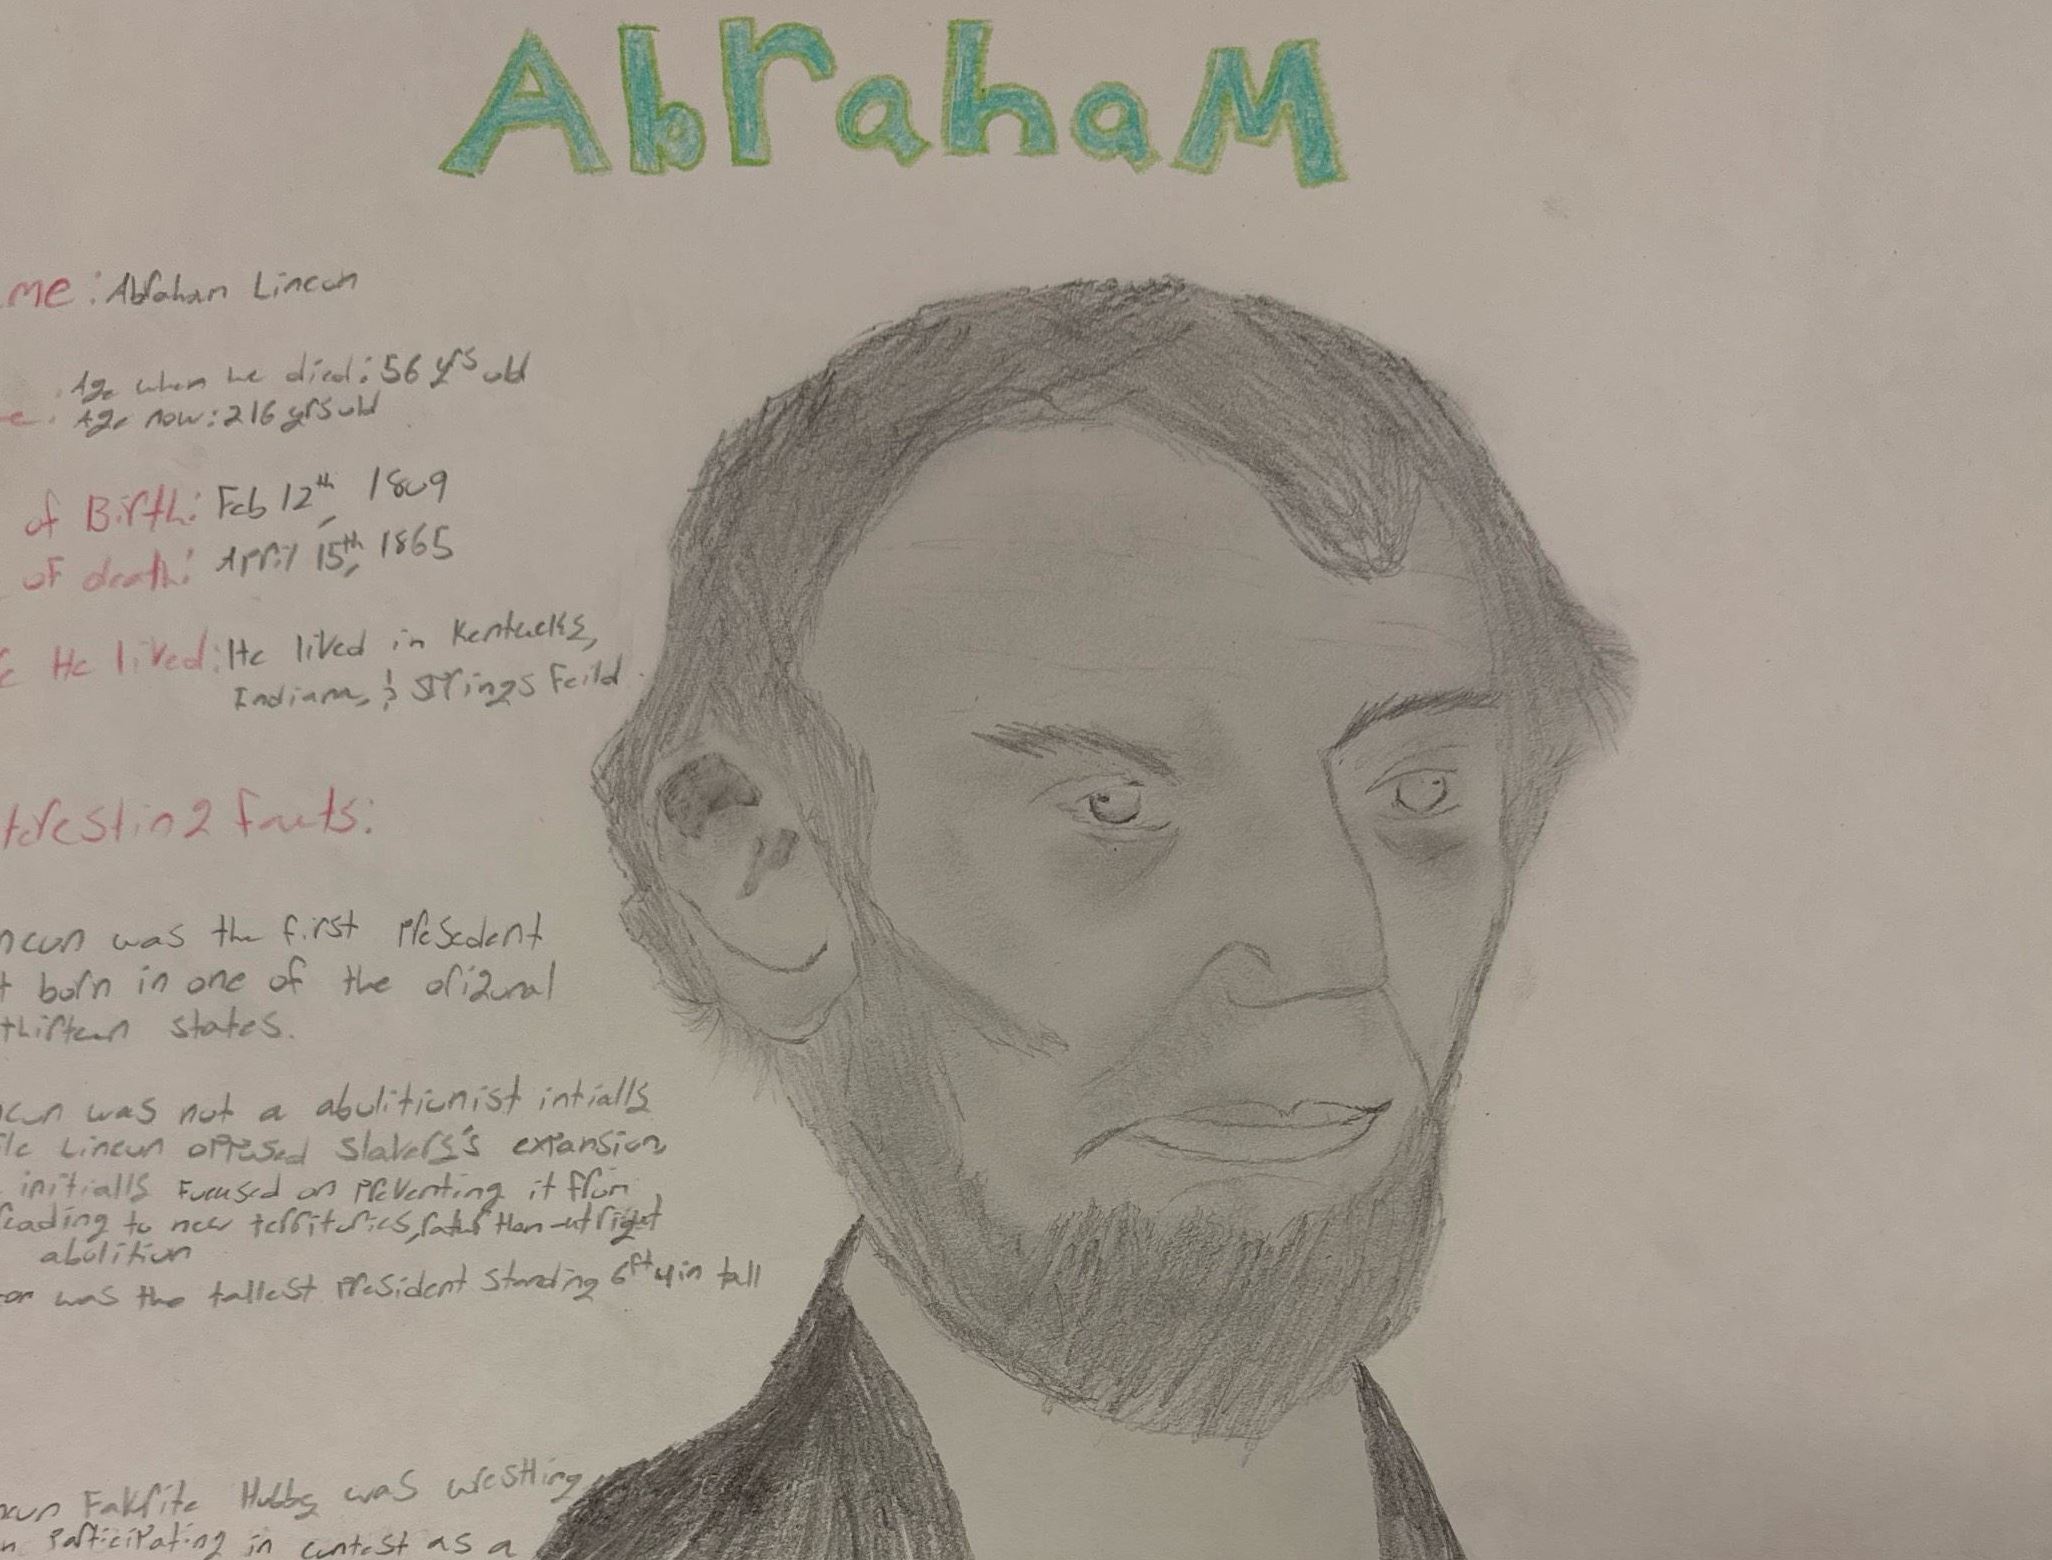 AbrahaM
me: Abraham Lincun
Age when he died: 56 yrs old
e. Age now: 216 yrs old
of Birth: Feb 12th, 1809
of death: April 15th, 1865
e He lived: He lived in Kentucky,
Indiana, & Springs Feild.
teresting facts:
ncun was the first Presedent
t born in one of the origunal
thirteen states.
ncun was not a abulitiunist intially
ile Lincun opposed Slavery's expansiun
initially Fucused on Preventing it frum
reading to new territuries, rater than outright
abulitiun
was the tallest President Standing 6ft 4in tall
ncun Fakrite Hubby was wrestling
n Participating in cuntest as a